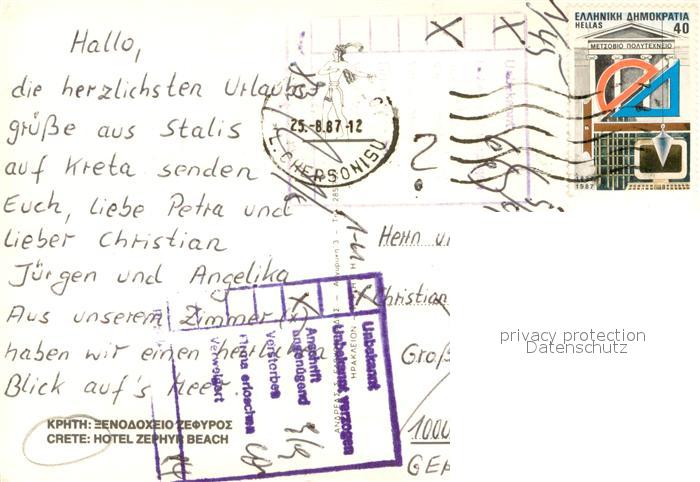 Hallo,
die herzlichsten Urlaubs
grüße aus Stalis
auf Kreta senden
Euch, liebe Petra und
lieber Christian
Jürgen und Angelika
Aus unserem Zimmer
haben wir einen herrlichen
Blick auf's Meer.
ΚΡΗΤΗ: ΞΕΝΟΔΟΧΕΙΟ ΖΕΦΥΡΟΣ
CRETE: HOTEL ZEPHYR BEACH
25.-8.87-12
L. CHERSONISU
?
ΕΛΛΗΝΙΚΗ ΔΗΜΟΚΡΑΤΙΑ
HELLAS 40
ΜΕΤΣΟΒΙΟ ΠΟΛΥΤΕΧΝΕΙΟ
1987
Herrn u
Christian
Groß
1000
GER
privacy protection
Datenschutz
Unbekannt
Unbekannt verzogen
Anschrift
ungenügend
Verstorben
Firma erloschen
Verweigert
ΗΡΑΚΛΕΙΟΝ